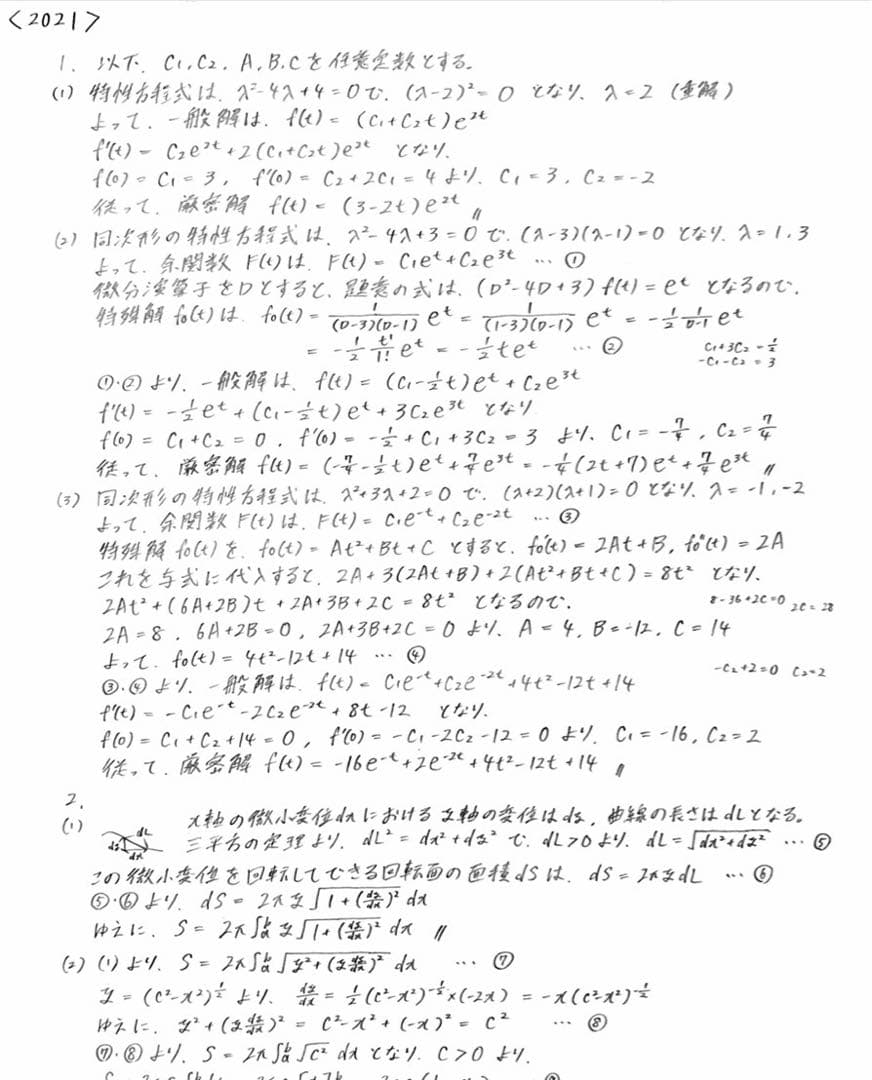 <2021>
1. 以下、C₁, C₂, A, B, Cを任意定数とする。
(1) 特性方程式は、λ²-4λ+4=0で、(λ-2)²=0 となり、λ=2 (重解)
よって、一般解は、f(t) = (C₁+C₂t)e^{2t}
f'(t) = C₂e^{2t}+2(C₁+C₂t)e^{2t} となり、
f(0) = C₁ = 3, f'(0) = C₂+2C₁ = 4 より、C₁=3, C₂=-2
従って、厳密解 f(t) = (3-2t)e^{2t} 〃
(2) 同次形の特性方程式は、λ²-4λ+3=0 で、(λ-3)(λ-1)=0 となり、λ=1, 3
よって、余関数 F(t)は、F(t) = C₁e^t+C₂e^{3t} … ①
微分演算子をDとすると、題意の式は、(D²-4D+3) f(t) = e^t となるので、
特殊解 f₀(t)は、f₀(t) = 1/((D-3)(D-1)) e^t = 1/((1-3)(D-1)) e^t = -1/2 1/(D-1) e^t
= -1/2 t¹/1! e^t = -1/2 te^t … ②
C₁+3C₂=1/2
-C₁-C₂ = 3
①・②より、一般解は、f(t) = (C₁-1/2t)e^t + C₂e^{3t}
f'(t) = -1/2e^t + (C₁-1/2t)e^t + 3C₂e^{3t} となり
f(0) = C₁+C₂ = 0, f'(0) = -1/2+C₁+3C₂ = 3 より、C₁=-7/4, C₂=7/4
従って、厳密解 f(t) = (-7/4-1/2t)e^t+7/4e^{3t} = -1/4(2t+7)e^t+7/4e^{3t} 〃
(3) 同次形の特性方程式は、λ²+3λ+2=0 で、(λ+2)(λ+1)=0 となり、λ=-1, -2
よって、余関数 F(t)は、F(t) = C₁e^{-t}+C₂e^{-2t} … ③
特殊解 f₀(t)を、f₀(t) = At²+Bt+C とすると、f₀'(t) = 2At+B, f₀''(t) = 2A
これを与式に代入すると、2A+3(2At+B)+2(At²+Bt+C) = 8t² となり、
2At²+(6A+2B)t+2A+3B+2C = 8t² となるので、
8-36+2C=0 2C=28
2A=8, 6A+2B=0, 2A+3B+2C=0 より、A=4, B=-12, C=14
よって、f₀(t) = 4t²-12t+14 … ④
-C₂+2=0 C₂=2
③・④より、一般解は、f(t) = C₁e^{-t}+C₂e^{-2t}+4t²-12t+14
f'(t) = -C₁e^{-t}-2C₂e^{-2t}+8t-12 となり、
f(0) = C₁+C₂+14=0, f'(0) = -C₁-2C₂-12=0 より、C₁=-16, C₂=2
従って、厳密解 f(t) = -16e^{-t}+2e^{-2t}+4t²-12t+14 〃
2.
(1) x軸の微小変位dxにおけるy軸の変位はdy, 曲線の長さはdLとなる。
dL dy dx
三平方の定理より、dL² = dx²+dy² で、dL>0より、dL=√(dx²+dy²) … ⑤
この微小変位を回転してできる回転面の面積dSは、dS = 2πy dL … ⑥
⑤・⑥より、dS = 2πy√(1+(dy/dx)²) dx
ゆえに、S = 2π∫ₐᵇ y√(1+(dy/dx)²) dx 〃
(2) (1)より、S = 2π∫ₐᵇ √(y²+(y dy/dx)²) dx … ⑦
y = (C²-x²)^{1/2} より、dy/dx = 1/2(C²-x²)^{-1/2}×(-2x) = -x(C²-x²)^{-1/2}
ゆえに、y²+(y dy/dx)² = C²-x²+(-x)² = C² … ⑧
⑦・⑧より、S = 2π∫ₐᵇ √C² dx となり、C>0 より、